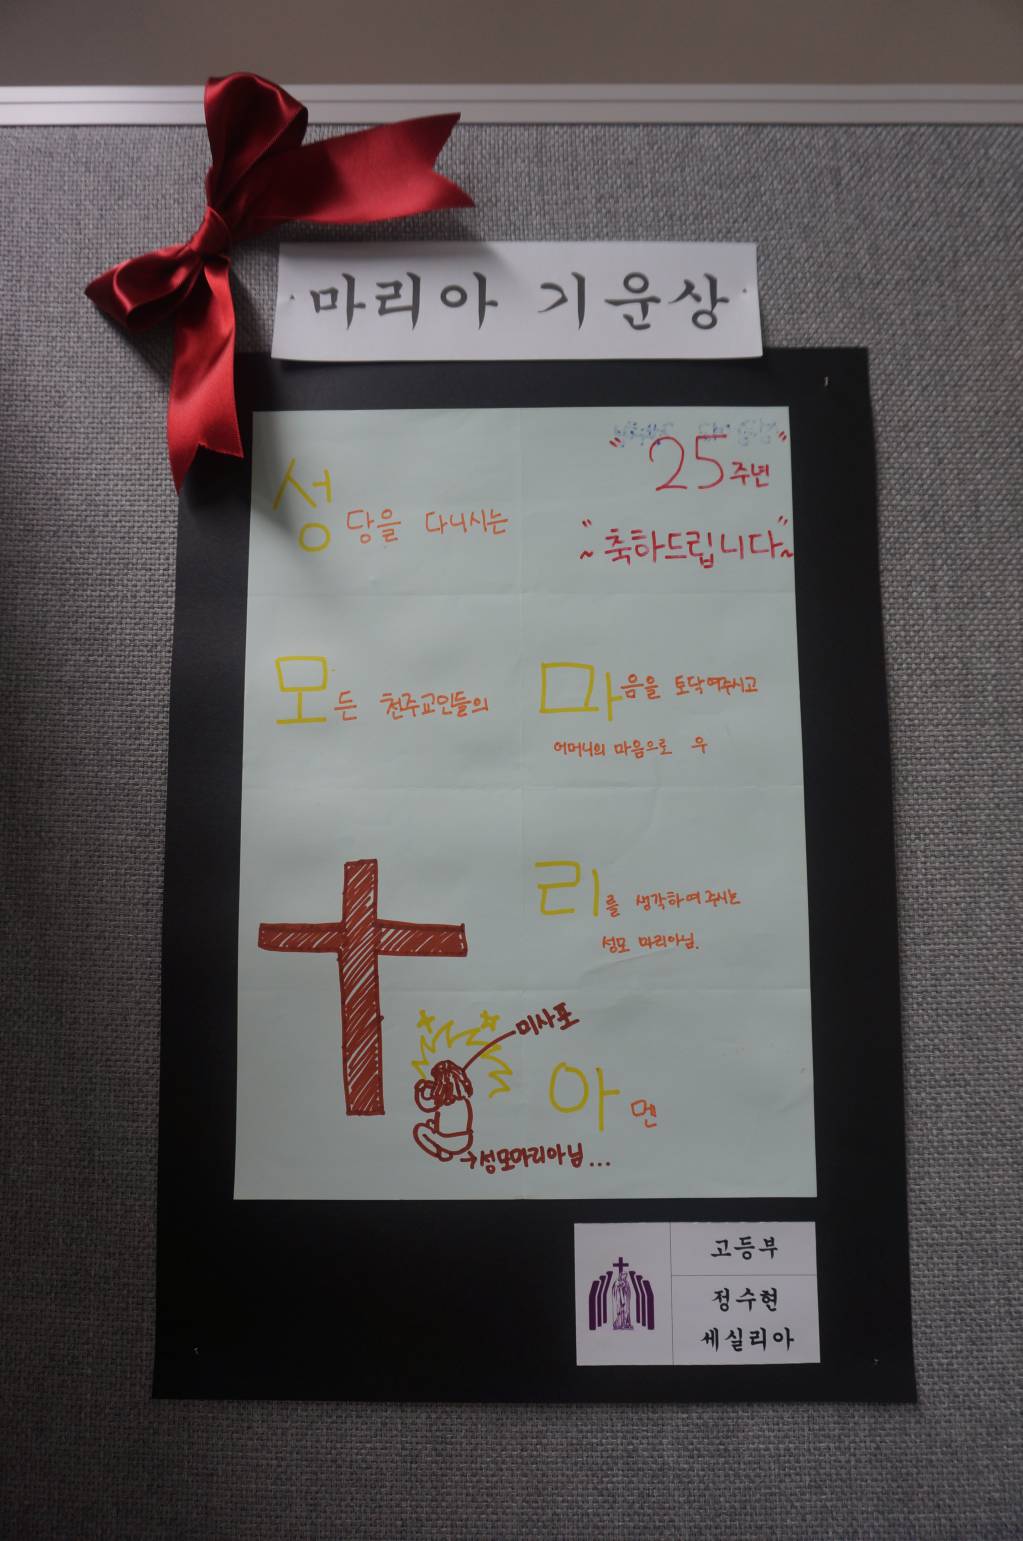 마리아 기운상
"25주년"
~"축하드립니다"~
성당을 다니시는
모든 천주교인들의
마음을 토닥여주시고
어머니의 마음으로 우
리를 생각하여주시는
성모 마리아님.
아멘
미사포
→성모마리아님...
고등부
정수현
세실리아